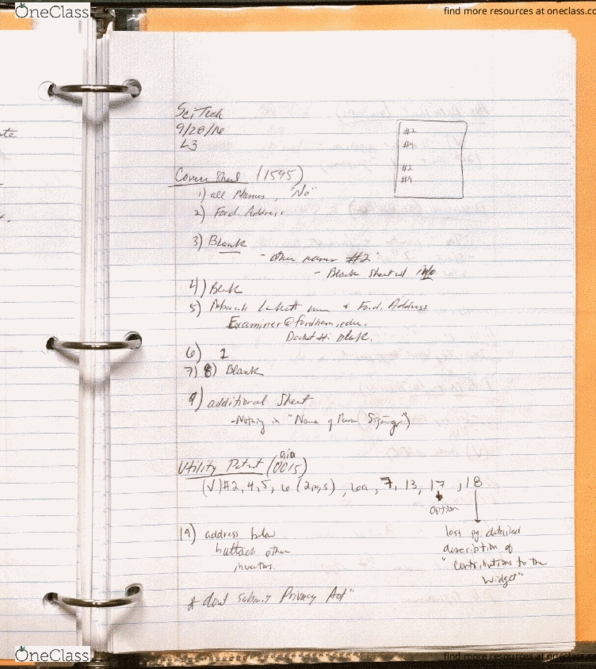 OneClass
find more resources at oneclass.co
SciTech
9/28/16
L3
#2
#9
#2
#9
Cover Sheet (1595)
1) all Names, "No"
2) Ford. Address
3) Blank
- other names #2
- Blank sheet w/ info
4) Blank
5) & Ford. Address
Examiner@fordham.edu.
Docket #: blank.
6) 1
7) 8) Blank
9) additional Sheet
- Nothing in "Name of Person Signing")
aia
Utility Patent (0015)
(√)#2, 4, 5, 6 (2, 5), 6a, 7, 13, 17, 18
option
19) address below
attach other
inventors.
last pg. detailed
description of
"contributions to the
Widget"
* dont submit Privacy Act"
OneClass
find more resources at oneclass.co